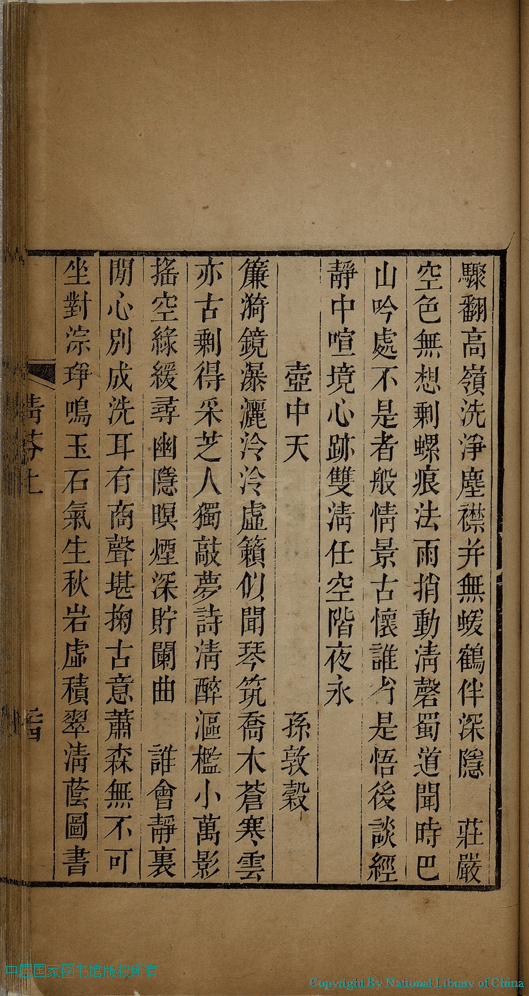 驟翻高嶺洗淨塵襟并無蝯鶴伴深隱　莊嚴
空色無想剩螺痕法雨捎動淸磬蜀道聞時巴
山吟處不是者般情景古懷誰省是悟後談經
靜中喧境心跡雙淸任空階夜永
壺中天　孫敦穀
簾漪鏡瀑灑泠泠虛籟似聞琴筑喬木蒼寒雲
亦古剩得采芝人獨敲夢詩淸醉漚檻小萬影
搖空綠緩尋幽隱暝煙深貯闌曲　誰會靜裏
閒心別成洗耳有商聲堪掬古意蕭森無不可
坐對淙琤鳴玉石氣生秋岩虛積翠淸蔭圖書
中国国家图书馆版权所有
Copyright By National Library of China